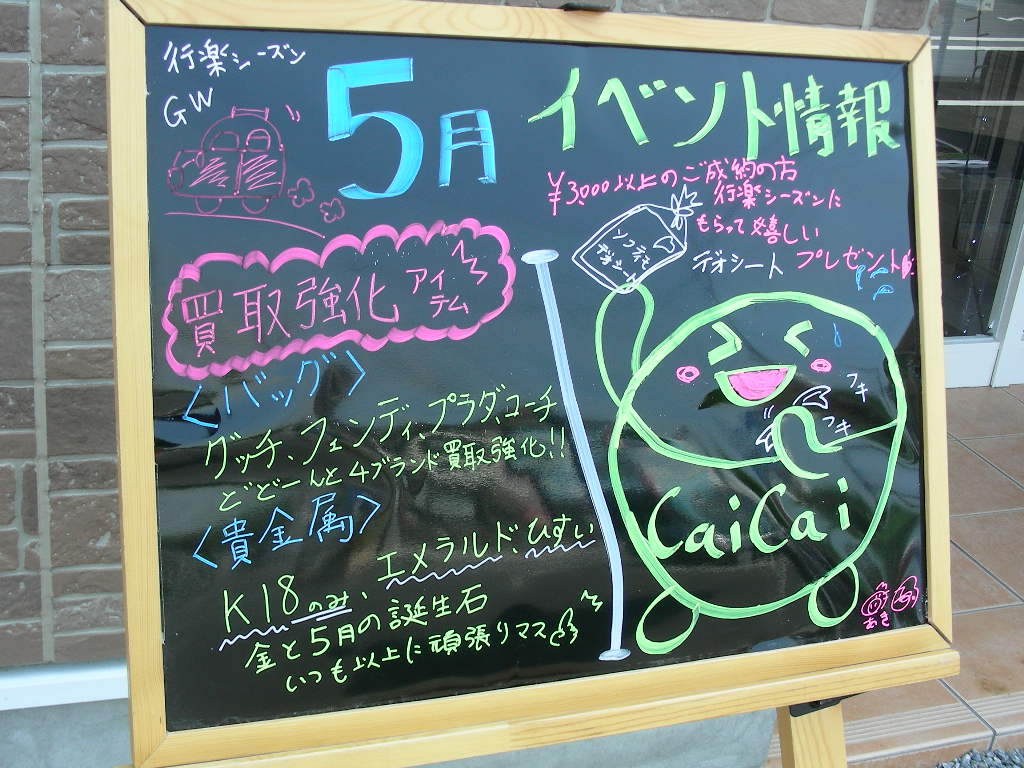 行楽シーズン
GW
5月
イベント情報
¥3,000以上のご成約の方
行楽シーズンに
もらって嬉しい
デオシート プレゼント
デオシート
買取強化アイテム
〈バッグ〉
グッチ、フェンディ、プラダ、コーチ
どどーんと4ブランド買取強化!!
〈貴金属〉
K18のみ、エメラルド、ひすい
金と5月の誕生石
いつも以上に頑張りマス
フキ
フキ
CaiCai
あき